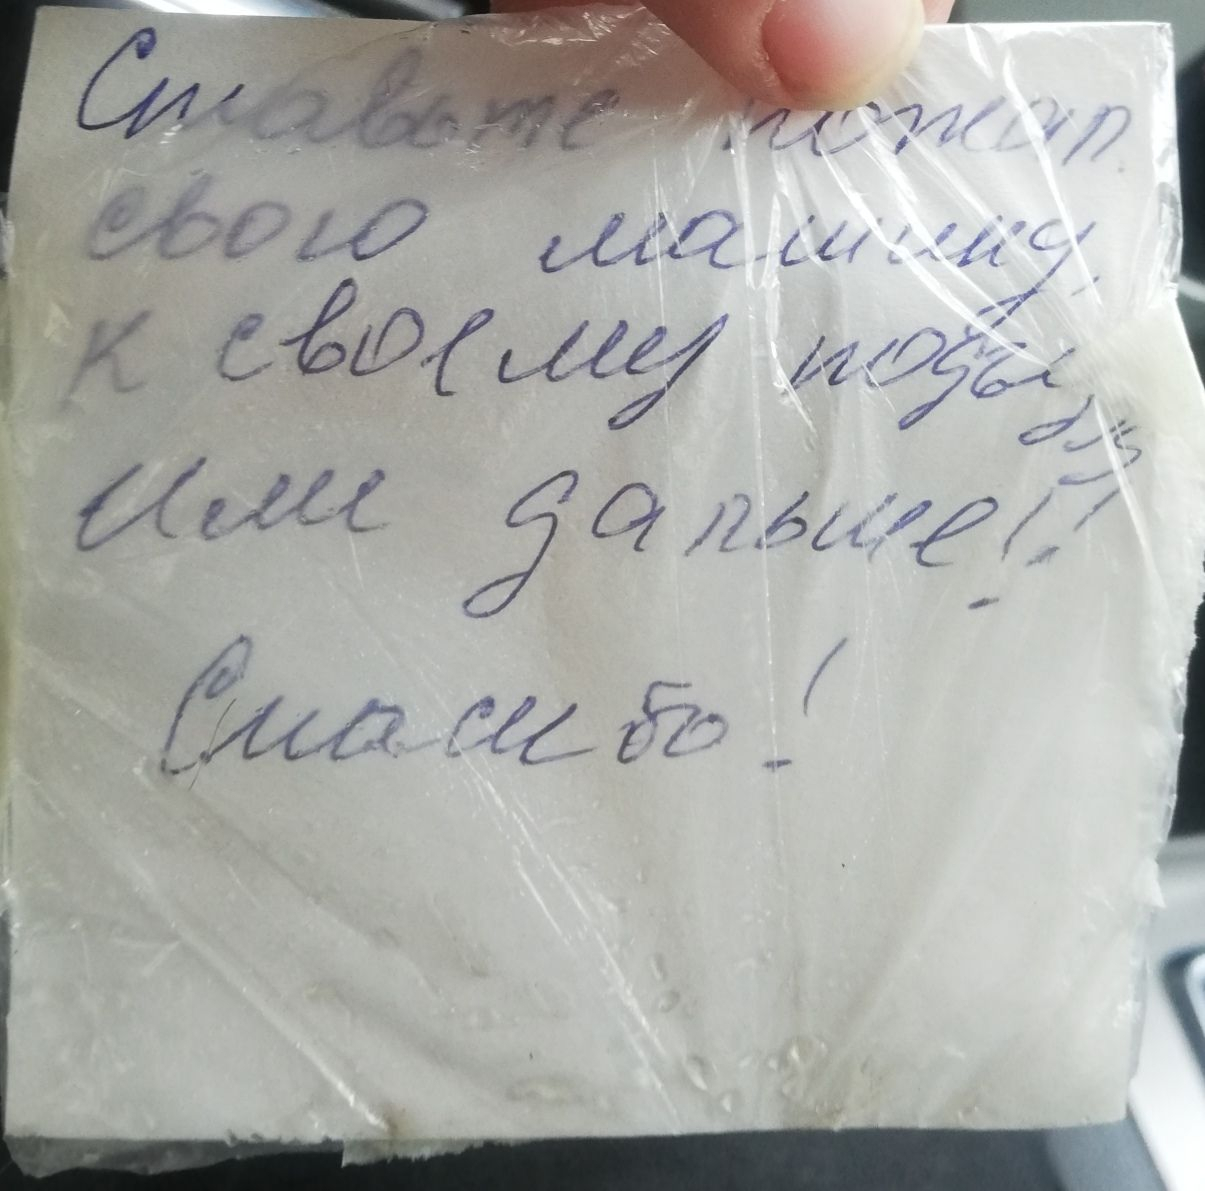 Ставьте пожал
свою машину
к своему подъез
ду
или дальше!!
Спасибо!